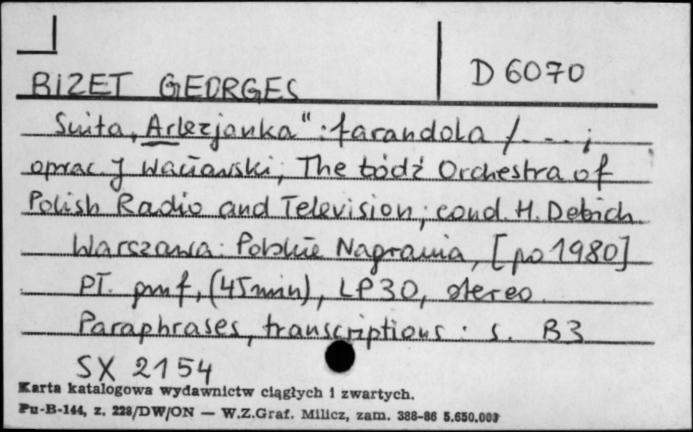 D 6070
BIZET GEORGES
Suita „Arlezjanka": farandola / . - - ;
oprac. J Waciowski, The Łódź Orchestra of
Polish Radio and Television; cond. H. Debich
Warszawa: Polskie Nagrania, [po 1980]
PŁ. gmf, (45 min), LP30, stereo
Paraphrases, transcriptions . s. B3
SX 2154
Karta katalogowa wydawnictw ciągłych i zwartych.
Pu-B-144, z. 228/DW/ON — W.Z.Graf. Milicz, zam. 388-86 5.650.003